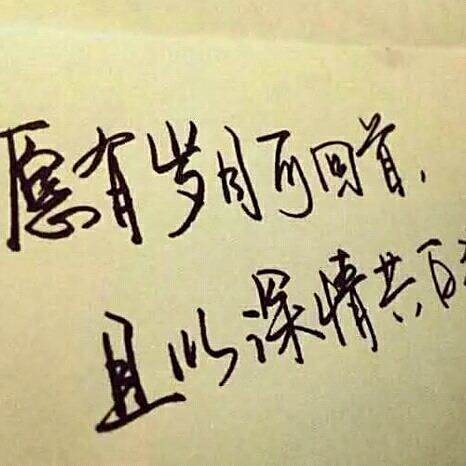 愿有岁月可回首,
且以深情共百